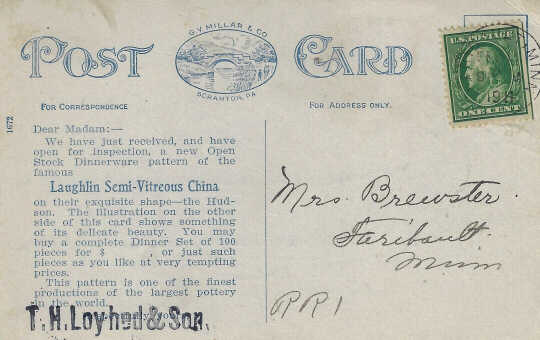 POST CARD
G.V. MILLAR & CO
SCRANTON, PA
FOR CORRESPONDENCE
FOR ADDRESS ONLY.
1672
U.S. POSTAGE
ONE CENT
MINN
Dear Madam:—
We have just received, and have
open for inspection, a new Open
Stock Dinnerware pattern of the
famous
Laughlin Semi-Vitreous China
on their exquisite shape—the Hud-
son. The illustration on the other
side of this card shows something
of its delicate beauty. You may
buy a complete Dinner Set of 100
pieces for $ , or just such
pieces as you like at very tempting
prices.
This pattern is one of the finest
productions of the largest pottery
in the world.
T. H. Loyhed & Son.
Mrs. Brewster.
Faribault.
Minn
RR1